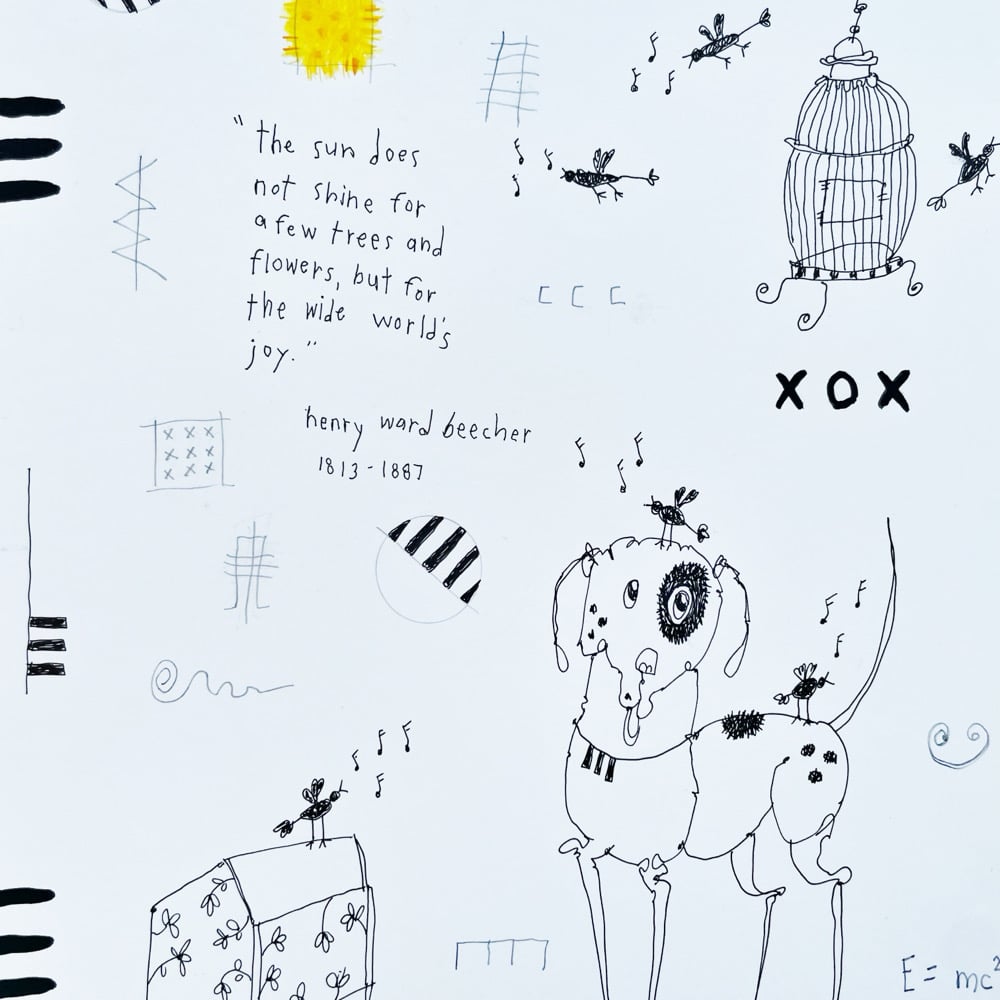 "the sun does
not shine for
a few trees and
flowers, but for
the wide world's
joy."
XOX
henry ward beecher
1813-1887
E = mc²